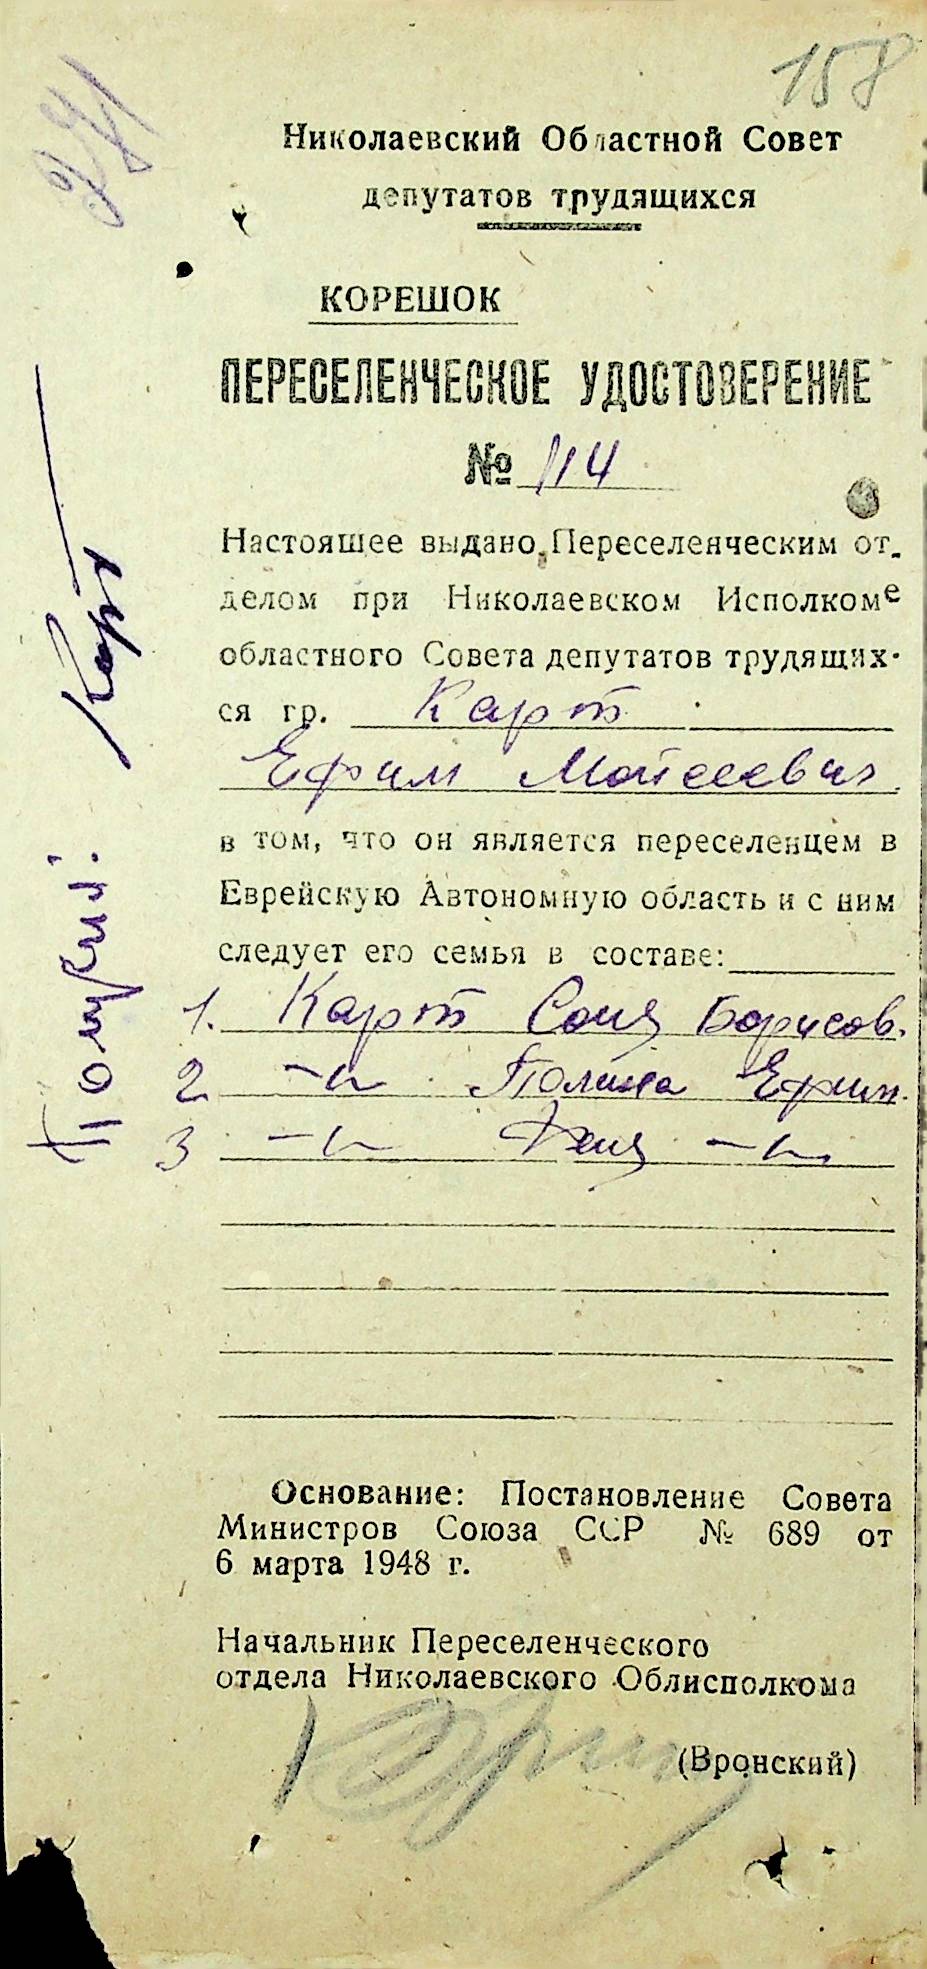 158
Николаевский Областной Совет
депутатов трудящихся
КОРЕШОК
ПЕРЕСЕЛЕНЧЕСКОЕ УДОСТОВЕРЕНИЕ
№ 114
Настоящее выдано Переселенческим от-
делом при Николаевском Исполкоме
областного Совета депутатов трудящих-
ся гр. Карт
Ефим Моисеевич
в том, что он является переселенцем в
Еврейскую Автономную область и с ним
следует его семья в составе:
1. Карт Соня Борисов.
2 -"- Полина Ефим.
3 -"- Феня -"-
Основание: Постановление Совета
Министров Союза ССР № 689 от
6 марта 1948 г.
Начальник Переселенческого
отдела Николаевского Облисполкома
(Вронский)
Получил: Карт